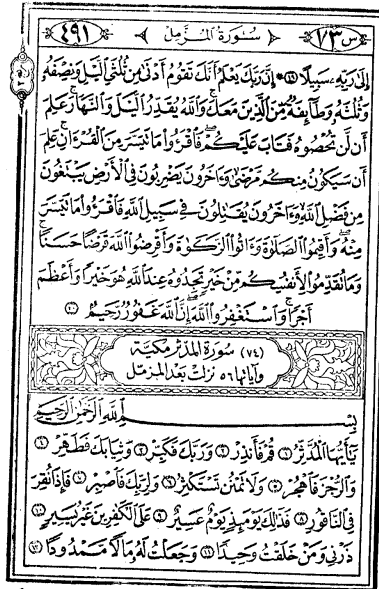 ٤٩١ سُورَةُ الْمُزَّمِّلِ س ٧٣
إِلَىٰ رَبِّهِۦ سَبِيلًا ﴿١٩﴾ * إِنَّ رَبَّكَ يَعْلَمُ أَنَّكَ تَقُومُ أَدْنَىٰ مِن ثُلُثَىِ ٱلَّيْلِ وَنِصْفَهُۥ
وَثُلُثَهُۥ وَطَآئِفَةٌ مِّنَ ٱلَّذِينَ مَعَكَ ۚ وَٱللَّهُ يُقَدِّرُ ٱلَّيْلَ وَٱلنَّهَارَ ۚ عَلِمَ
أَن لَّن تُحْصُوهُ فَتَابَ عَلَيْكُمْ ۖ فَٱقْرَءُوا۟ مَا تَيَسَّرَ مِنَ ٱلْقُرْءَانِ ۚ عَلِمَ
أَن سَيَكُونُ مِنكُم مَّرْضَىٰ ۙ وَءَاخَرُونَ يَضْرِبُونَ فِى ٱلْأَرْضِ يَبْتَغُونَ
مِن فَضْلِ ٱللَّهِ ۙ وَءَاخَرُونَ يُقَٰتِلُونَ فِى سَبِيلِ ٱللَّهِ ۖ فَٱقْرَءُوا۟ مَا تَيَسَّرَ
مِنْهُ ۚ وَأَقِيمُوا۟ ٱلصَّلَوٰةَ وَءَاتُوا۟ ٱلزَّكَوٰةَ وَأَقْرِضُوا۟ ٱللَّهَ قَرْضًا حَسَنًا ۚ
وَمَا تُقَدِّمُوا۟ لِأَنفُسِكُم مِّنْ خَيْرٍ تَجِدُوهُ عِندَ ٱللَّهِ هُوَ خَيْرًا وَأَعْظَمَ
أَجْرًا ۚ وَٱسْتَغْفِرُوا۟ ٱللَّهَ ۖ إِنَّ ٱللَّهَ غَفُورٌ رَّحِيمٌ ﴿٢٠﴾
(٧٤) سورة المدثر مكية
وآياتها ٥٦ نزلت بعد المزمل
بِسْمِ ٱللَّهِ ٱلرَّحْمَٰنِ ٱلرَّحِيمِ
يَٰٓأَيُّهَا ٱلْمُدَّثِّرُ ﴿١﴾ قُمْ فَأَنذِرْ ﴿٢﴾ وَرَبَّكَ فَكَبِّرْ ﴿٣﴾ وَثِيَابَكَ فَطَهِّرْ ﴿٤﴾
وَٱلرُّجْزَ فَٱهْجُرْ ﴿٥﴾ وَلَا تَمْنُن تَسْتَكْثِرُ ﴿٦﴾ وَلِرَبِّكَ فَٱصْبِرْ ﴿٧﴾ فَإِذَا نُقِرَ
فِى ٱلنَّاقُورِ ﴿٨﴾ فَذَٰلِكَ يَوْمَئِذٍ يَوْمٌ عَسِيرٌ ﴿٩﴾ عَلَى ٱلْكَٰفِرِينَ غَيْرُ يَسِيرٍ ﴿١٠﴾
ذَرْنِى وَمَنْ خَلَقْتُ وَحِيدًا ﴿١١﴾ وَجَعَلْتُ لَهُۥ مَالًا مَّمْدُودًا ﴿١٢﴾